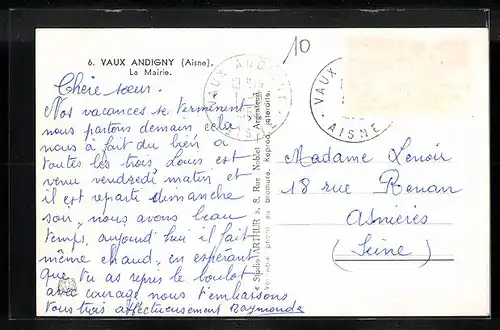 6. VAUX ANDIGNY (Aisne).
La Mairie.
10
VAUX ANDIGNY
AISNE
VAUX
AISNE
Chère sœur.
Nos vacances se terminent
nous partons demain, cela
nous à fait du bien à
toutes les trois Loues est
venu vendredi matin et
il est reparti dimanche
soir, nous avons beau
temps, aujourd hui il fait
même chaud, en espérant
que tu as repris le boulot
avec courage nous t'embrassons
tous trois affectueusement Raymonde
Studio ARTHUR 3, & Rue Noblet - Argenteuil
Véritable photo au bromure. Reprod. interdite.
Madame Lenoir
18 rue Renan
Asnières
(Seine)